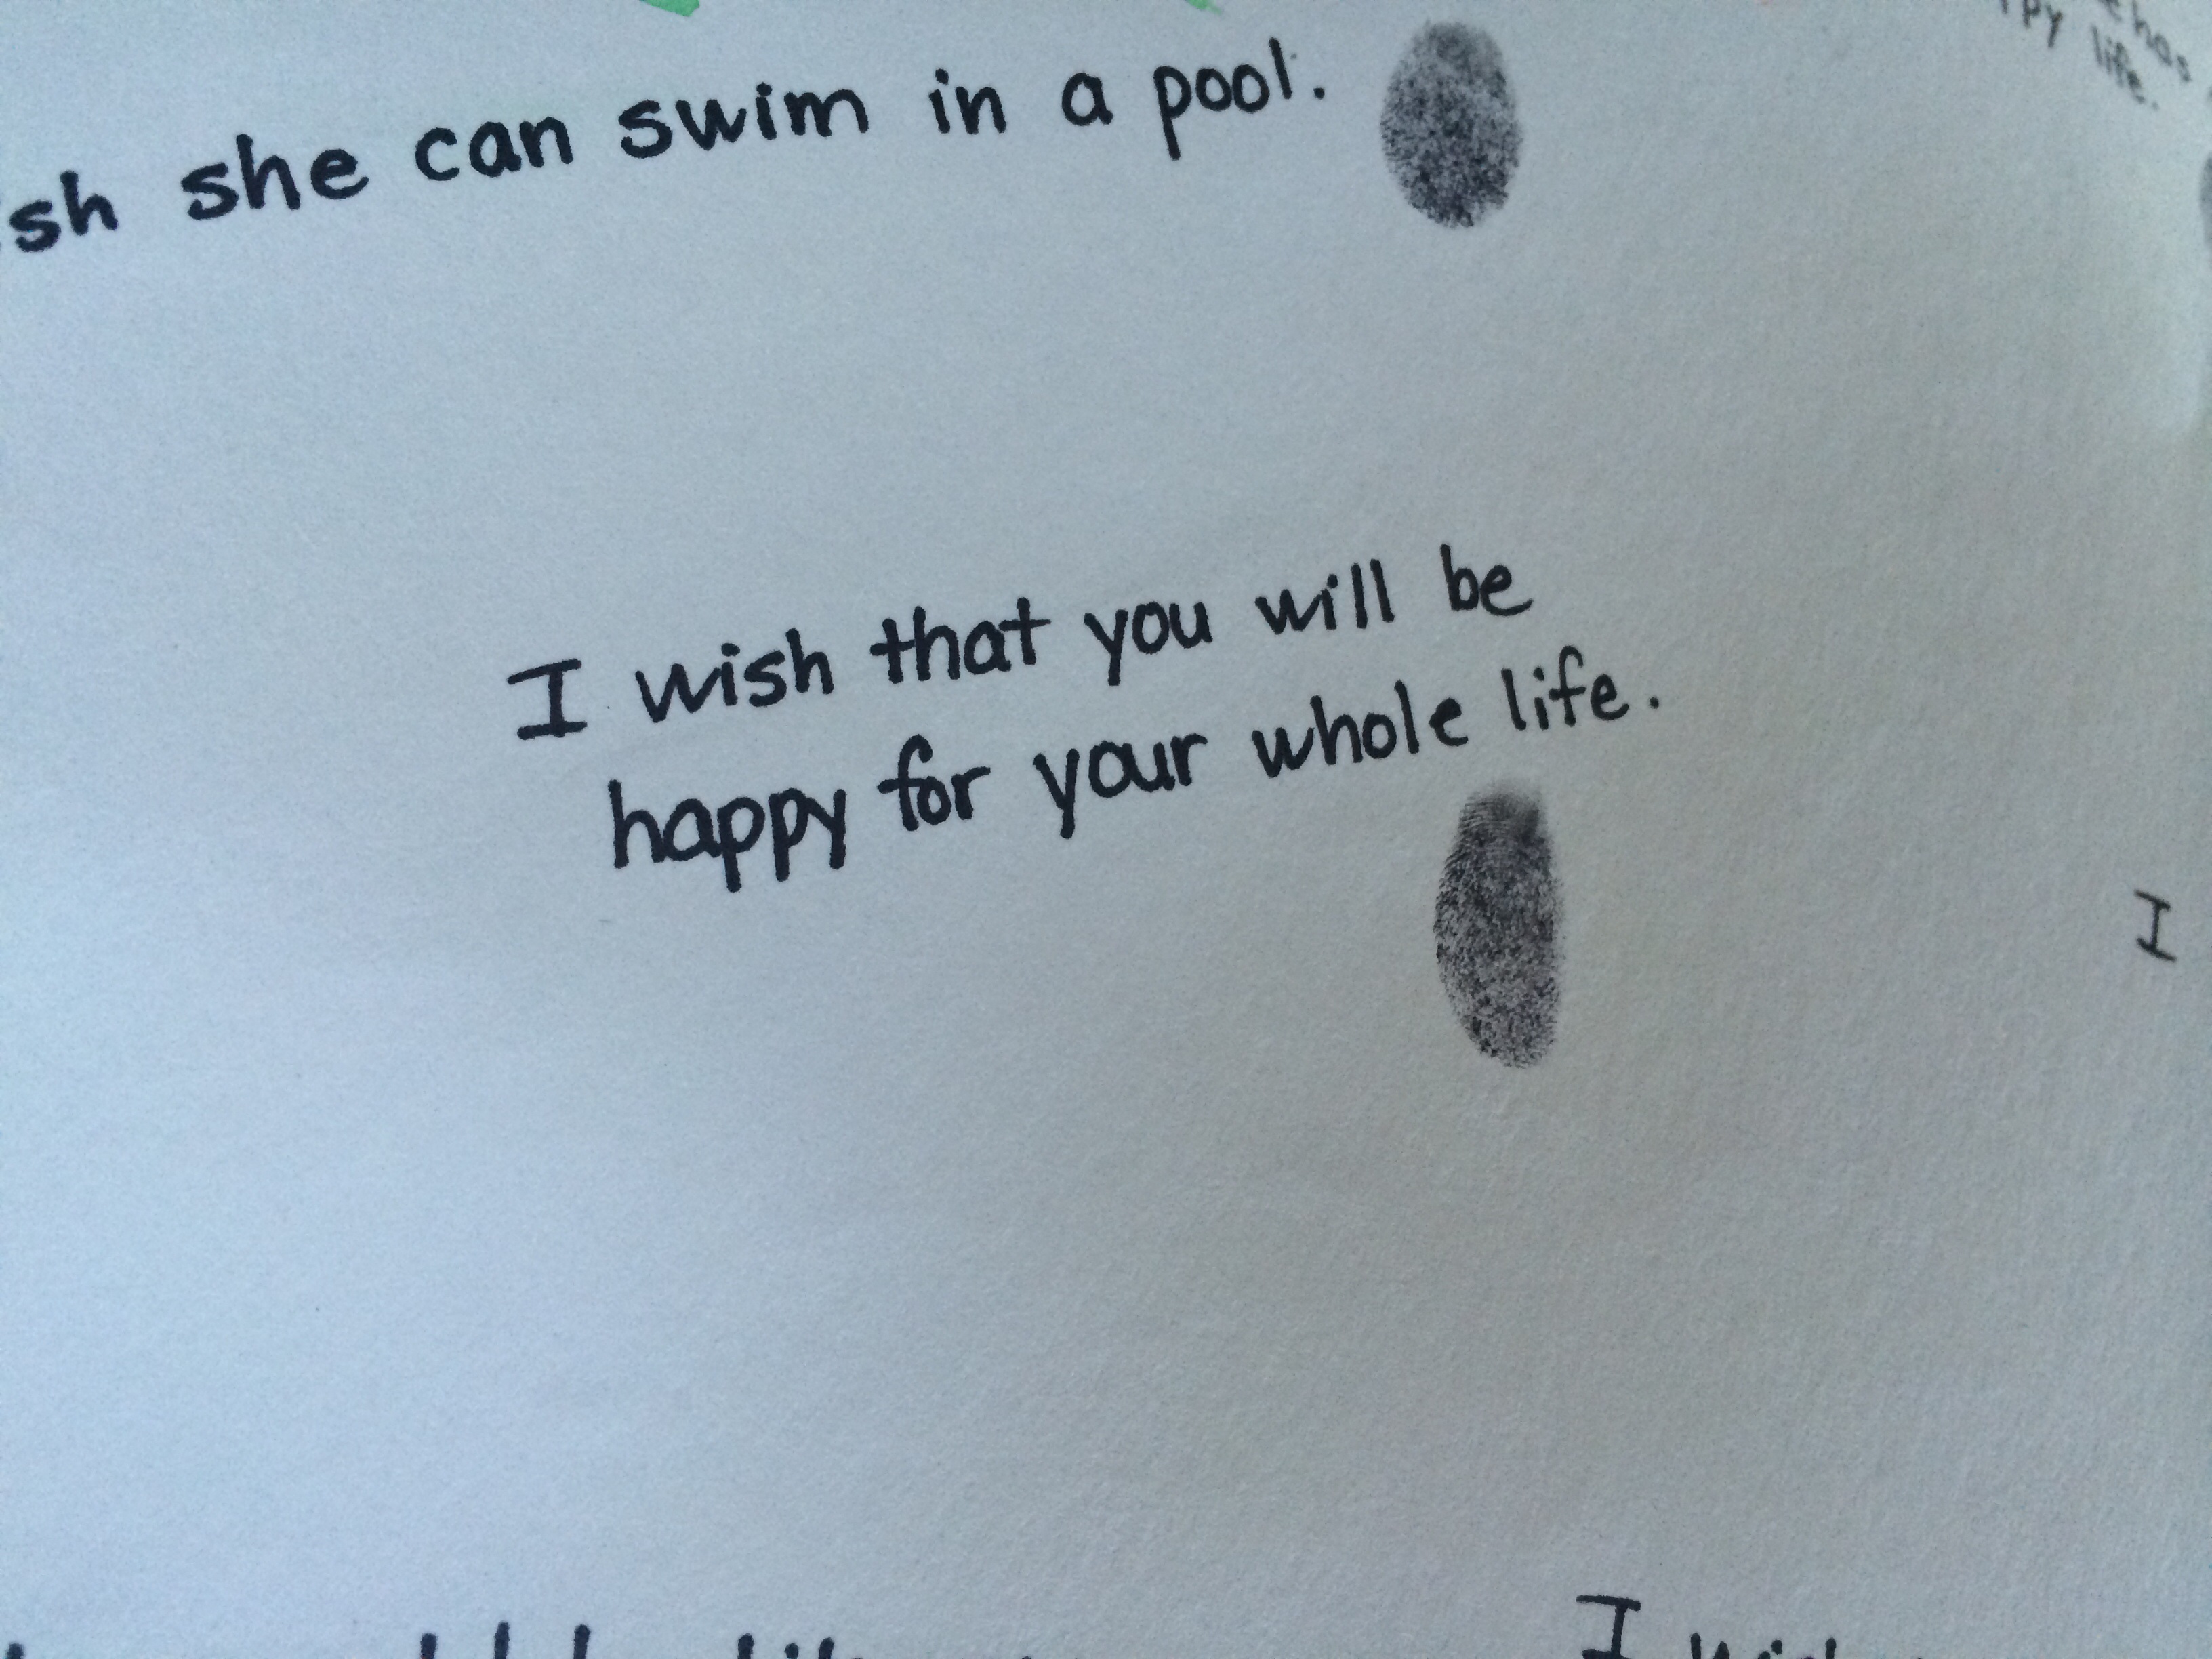 sh she can swim in a pool.
has
life.
I wish that you will be
happy for your whole life.
I
I wish